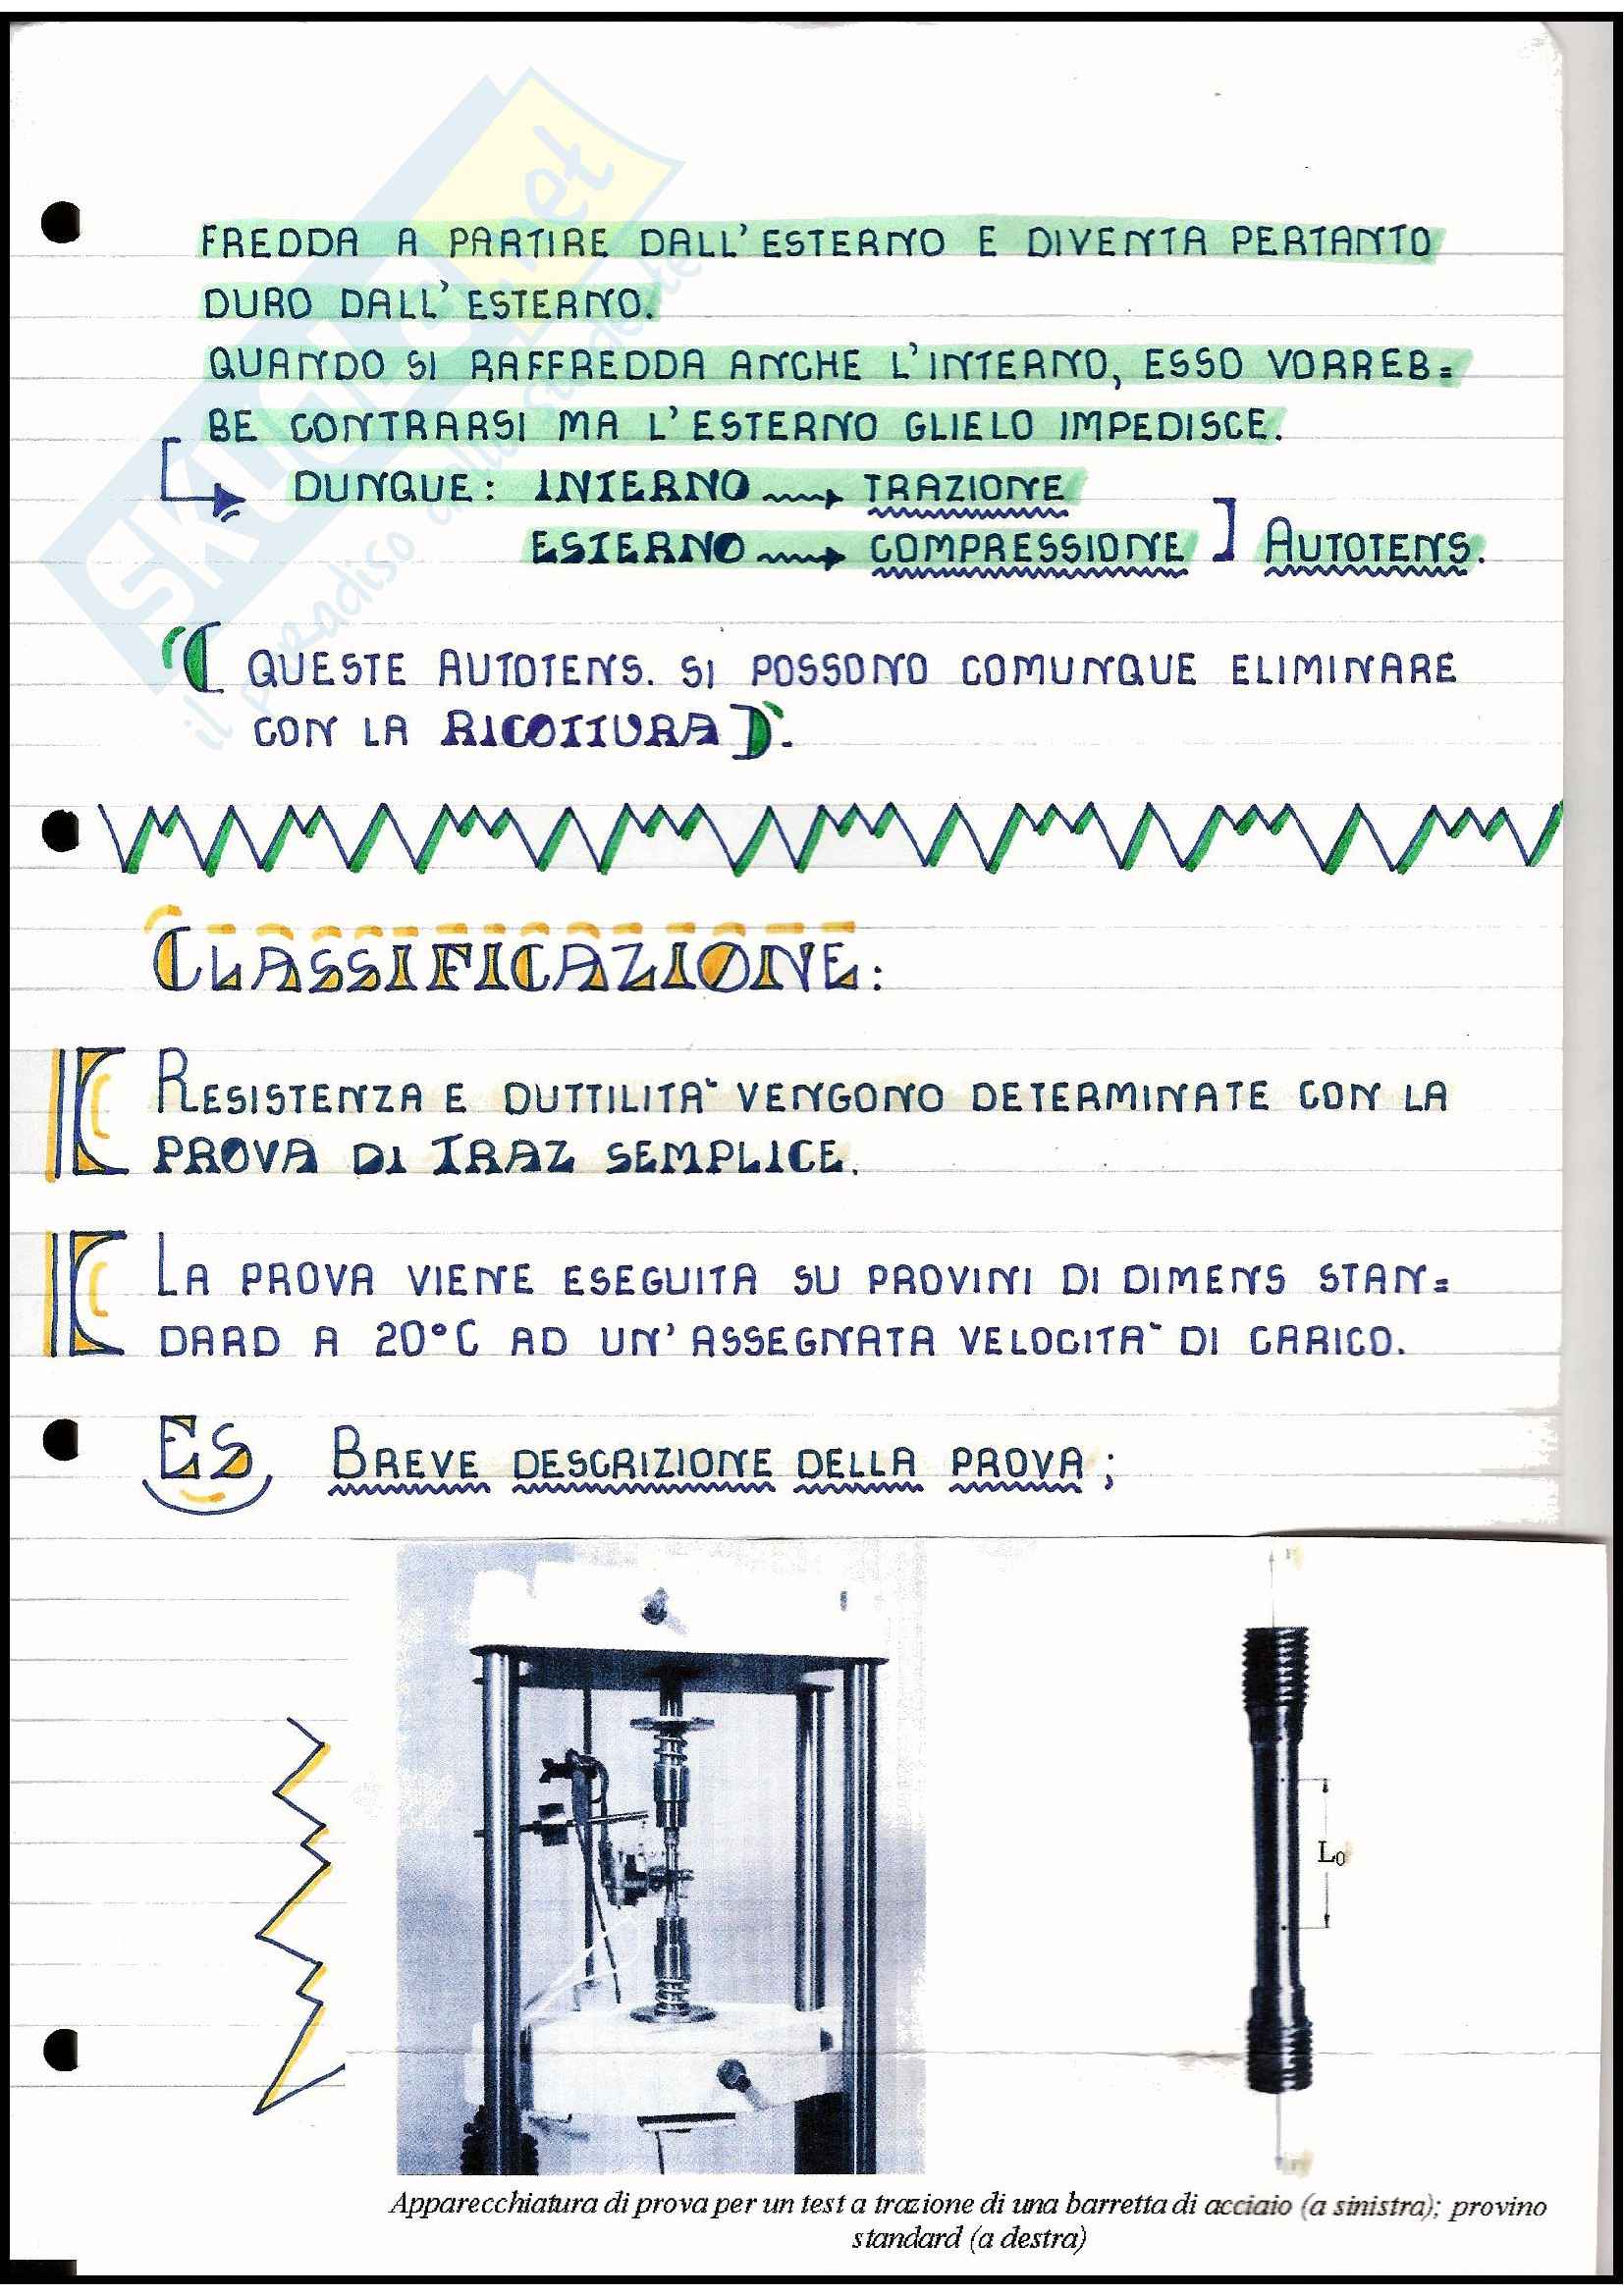 FREDDA A PARTIRE DALL'ESTERNO E DIVENTA PERTANTO
DURO DALL'ESTERNO.
QUANDO SI RAFFREDDA ANCHE L'INTERNO, ESSO VORREB=
BE CONTRARSI MA L'ESTERNO GLIELO IMPEDISCE.
DUNQUE: INTERNO → TRAZIONE
ESTERNO → COMPRESSIONE ] AUTOTENS.
(QUESTE AUTOTENS. SI POSSONO COMUNQUE ELIMINARE
CON LA RICOTTURA).
CLASSIFICAZIONE:
RESISTENZA E DUTTILITA' VENGONO DETERMINATE CON LA
PROVA DI TRAZ SEMPLICE.
LA PROVA VIENE ESEGUITA SU PROVINI DI DIMENS STAN=
DARD A 20°C AD UN'ASSEGNATA VELOCITA' DI CARICO.
ES BREVE DESCRIZIONE DELLA PROVA;
L0
Apparecchiatura di prova per un test a trazione di una barretta di acciaio (a sinistra); provino
standard (a destra)
SKUOLA.net
il paradiso dello studente